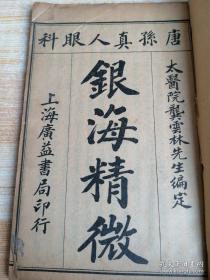 唐孫真人眼科
太醫院龔雲林先生編定
銀海精微
上海廣益書局印行